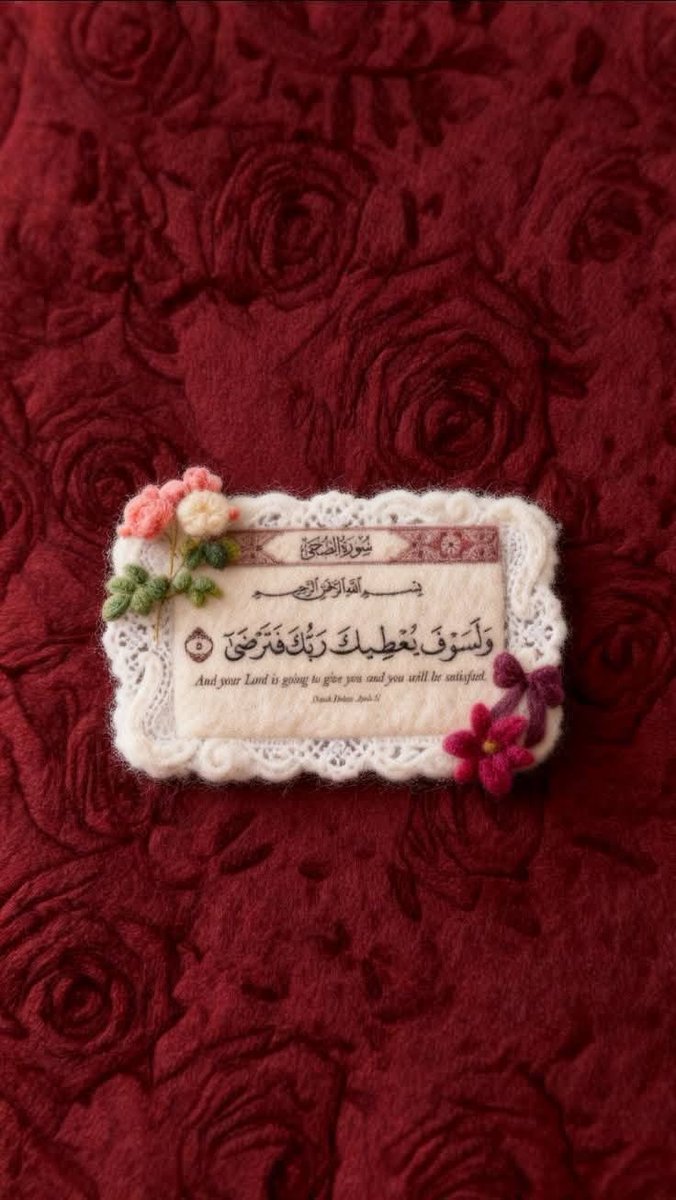 سُورَةُ الضُّحَىٰ
بِسْمِ اللَّهِ الرَّحْمَٰنِ الرَّحِيمِ
وَلَسَوْفَ يُعْطِيكَ رَبُّكَ فَتَرْضَىٰٓ ٥
And your Lord is going to give you and you will be satisfied.